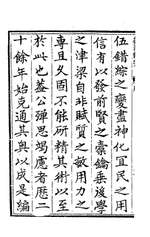 伍錯綜之變盡神化宜民之用
信有以發前賢之橐鑰垂後學
之津梁自非賦質之敏用力之
專且久固不能研精其術以至
於此也蓋公殫思竭慮者歷二
十餘年始克通其奥以成是編